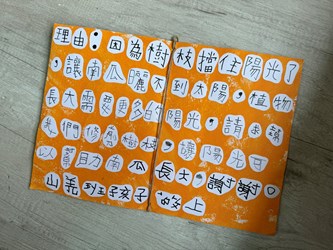 理由：因為樹枝擋住陽光了
，讓南瓜曬不到太陽，植物
長大需要更多的陽光，請
我們修剪樹枝，讓陽光可
以幫助南瓜長大，謝謝。
山羌孩子敬上